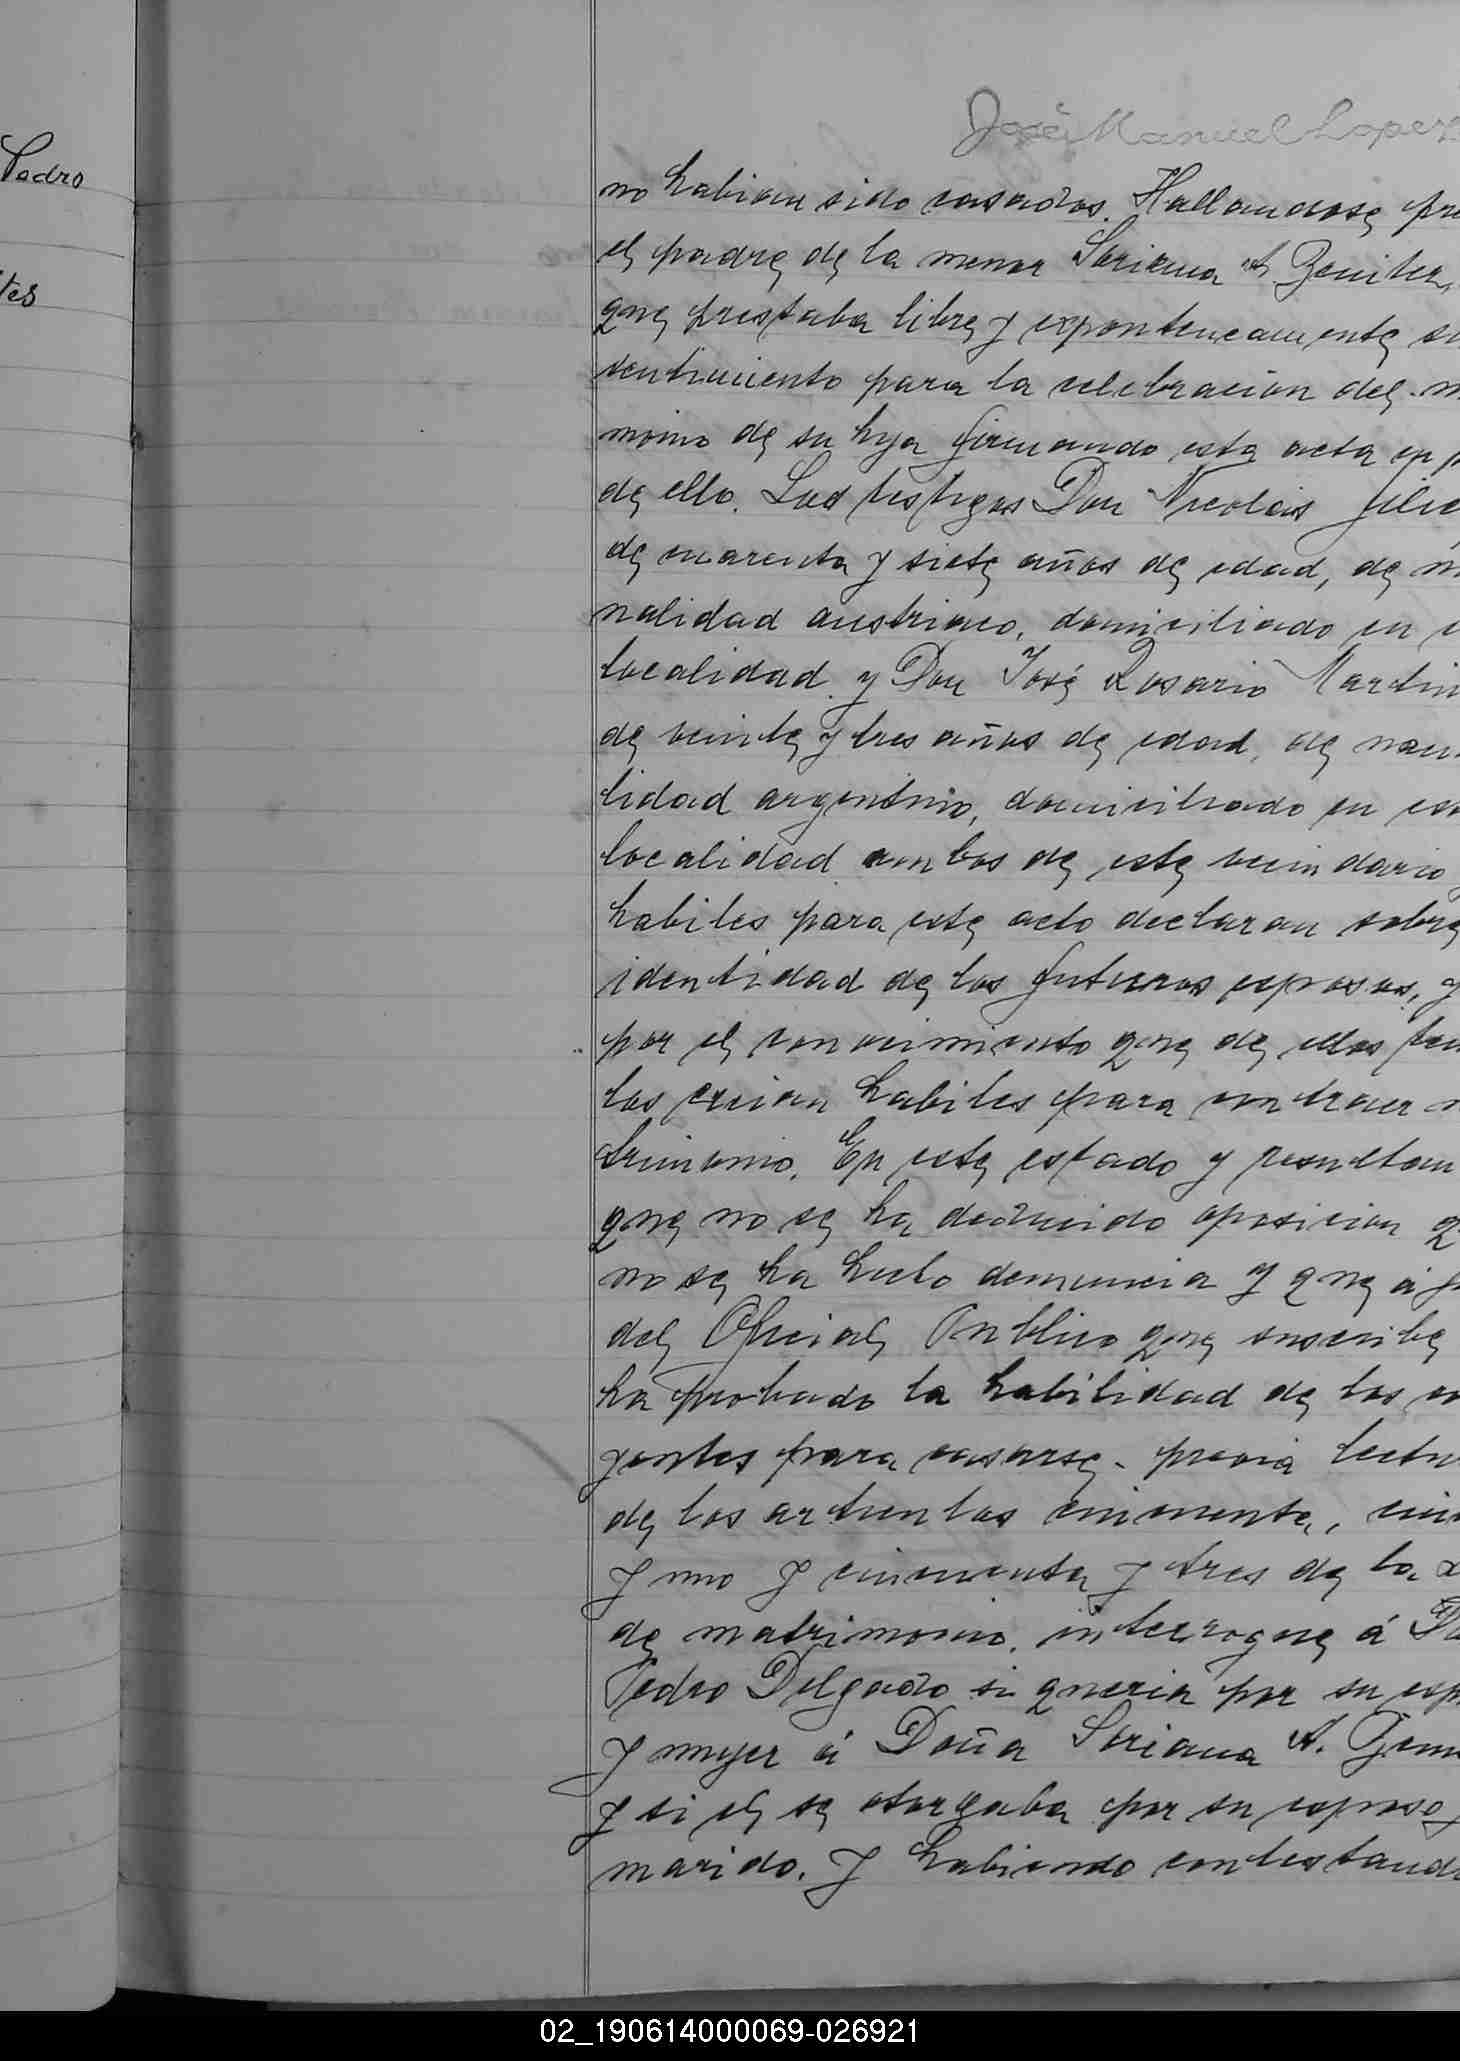 Pedro
tes
José Manuel Lopez
no habian sido casados. Hallandose pre
el padre de la menor Soriana A. Benitez,
que prestaba libre y exponteneamente su
sentimiento para la celebracion del m
monio de su hija firmando esta acta en p
de ello. Los testigos Don Nicolás
de cuarenta y siete años de edad, de na
nalidad austriaco, domiciliado en e
localidad y Don José Rosario Martin
de veinte y tres años de edad, de nacio
lidad argentino, domiciliado en esa
localidad ambos de este vecindario y
habiles para este acto declaran sobre
identidad de los futuros esposos, y
por el conocimiento que de ellos ten
los creian habiles para contraer m
trimonio. En este estado y resultan
que no se ha deducido oposicion q
no se ha hecho denuncia y que á ju
del Oficial Publico que suscribe
ha probado la habilidad de los co
yentes para casarse. previa lectu
de los articulos cincuenta, cin
y uno y cincuenta y tres de la L
de matrimonio. interrogue á D
Pedro Delgado si queria por su esp
y muger á Doña Soriana A. Beni
y si el se otorgaba por su esposo y
marido. Y habiendo contestando
02_190614000069-026921